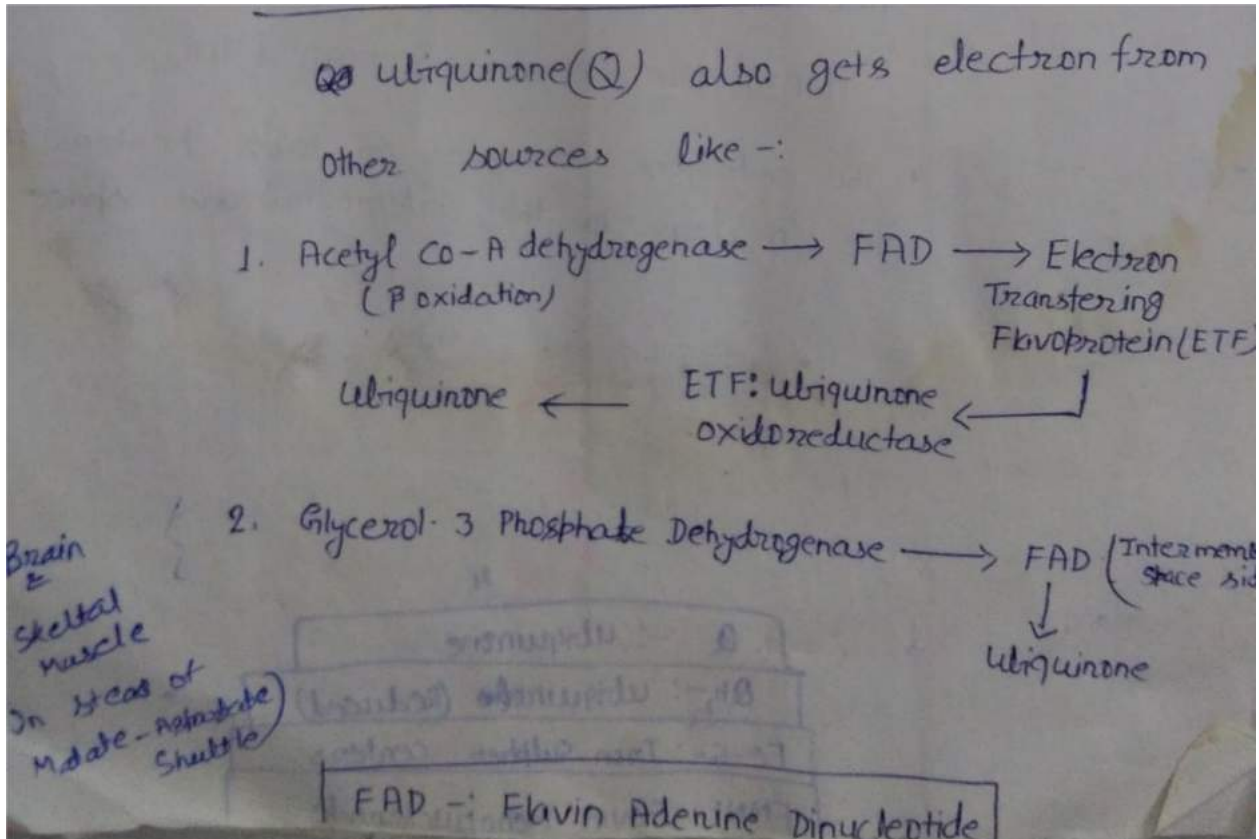 ubiquinone(Q) also gets electron from
other sources like -:
1. Acetyl CO-A dehydrogenase → FAD → Electron
(β oxidation)
Transtering
Flavoprotein (ETF)
ubiquinone ← ETF: ubiquinone
oxidoreductase
2. Glycerol-3 Phosphate Dehydrogenase → FAD (Intermem
space sid
ubiquinone
Brain
&
Skeltal
Muscle
In stead of
Malate-Aspartate
Shuttle)
Q : ubiquinone
QH2 -: ubiquinone (Reduced)
FAD -: Flavin Adenine Dinucleptide